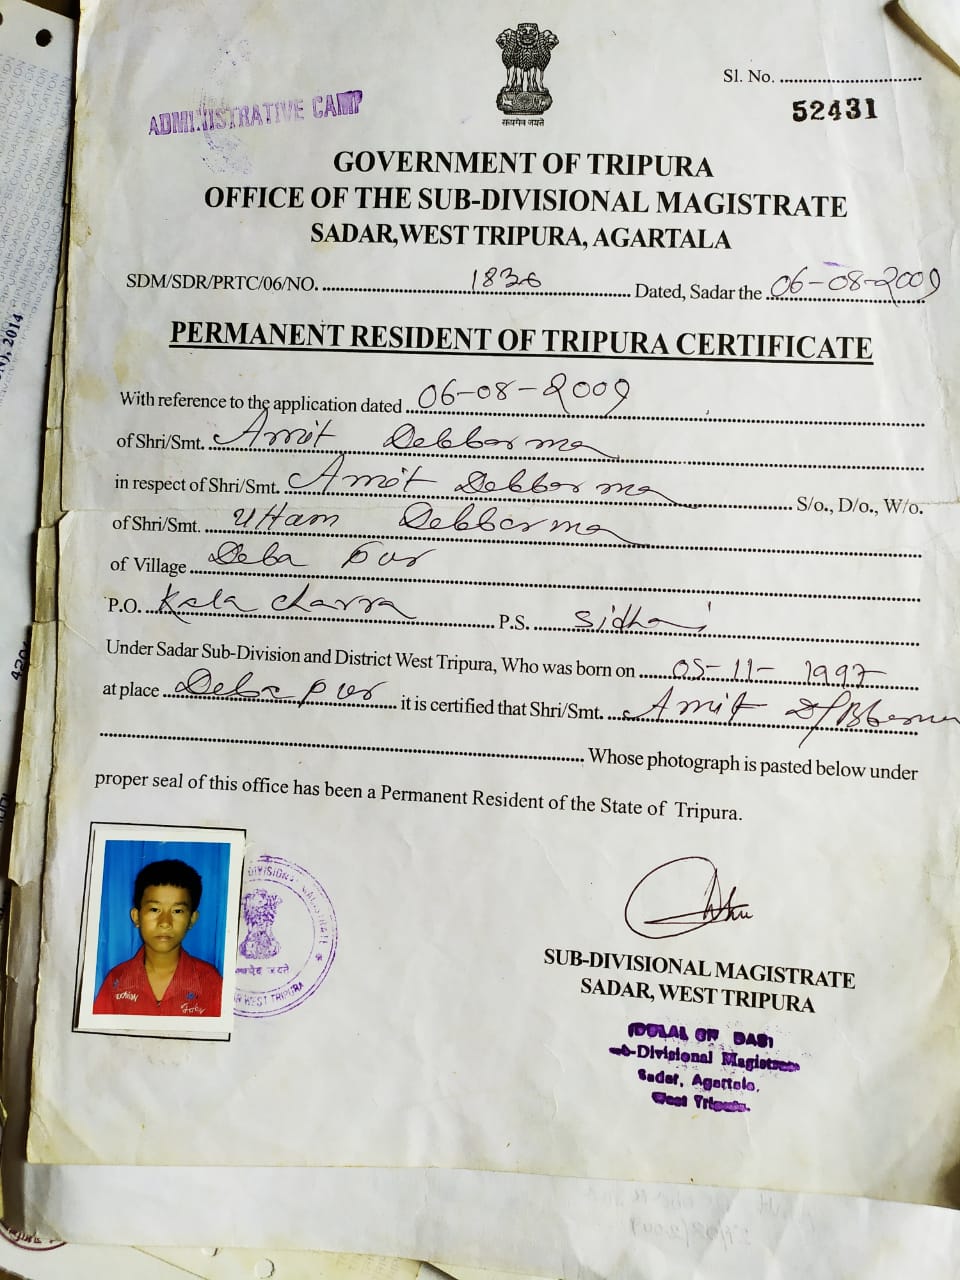 Sl. No. ........................
52431
ADMINISTRATIVE CAMP
सत्यमेव जयते
GOVERNMENT OF TRIPURA
OFFICE OF THE SUB-DIVISIONAL MAGISTRATE
SADAR, WEST TRIPURA, AGARTALA
SDM/SDR/PRTC/06/NO. 1836 Dated, Sadar the 06-08-2009
PERMANENT RESIDENT OF TRIPURA CERTIFICATE
With reference to the application dated 06-08-2009
of Shri/Smt. Amit Debbarma
in respect of Shri/Smt. Amit Debbarma S/o., D/o., W/o.
of Shri/Smt. Uttam Debbarma
of Village Deba pur
P.O. Kala Charra P.S. Sidhai
Under Sadar Sub-Division and District West Tripura, Who was born on 05-11-1997
at place Debapur it is certified that Shri/Smt. Amit
Whose photograph is pasted below under
proper seal of this office has been a Permanent Resident of the State of Tripura.
SUB-DIVISIONAL MAGISTRATE
SADAR, WEST TRIPURA
Sub-Divisional Magistrate
Sadar, Agartala.
West Tripura.
2014